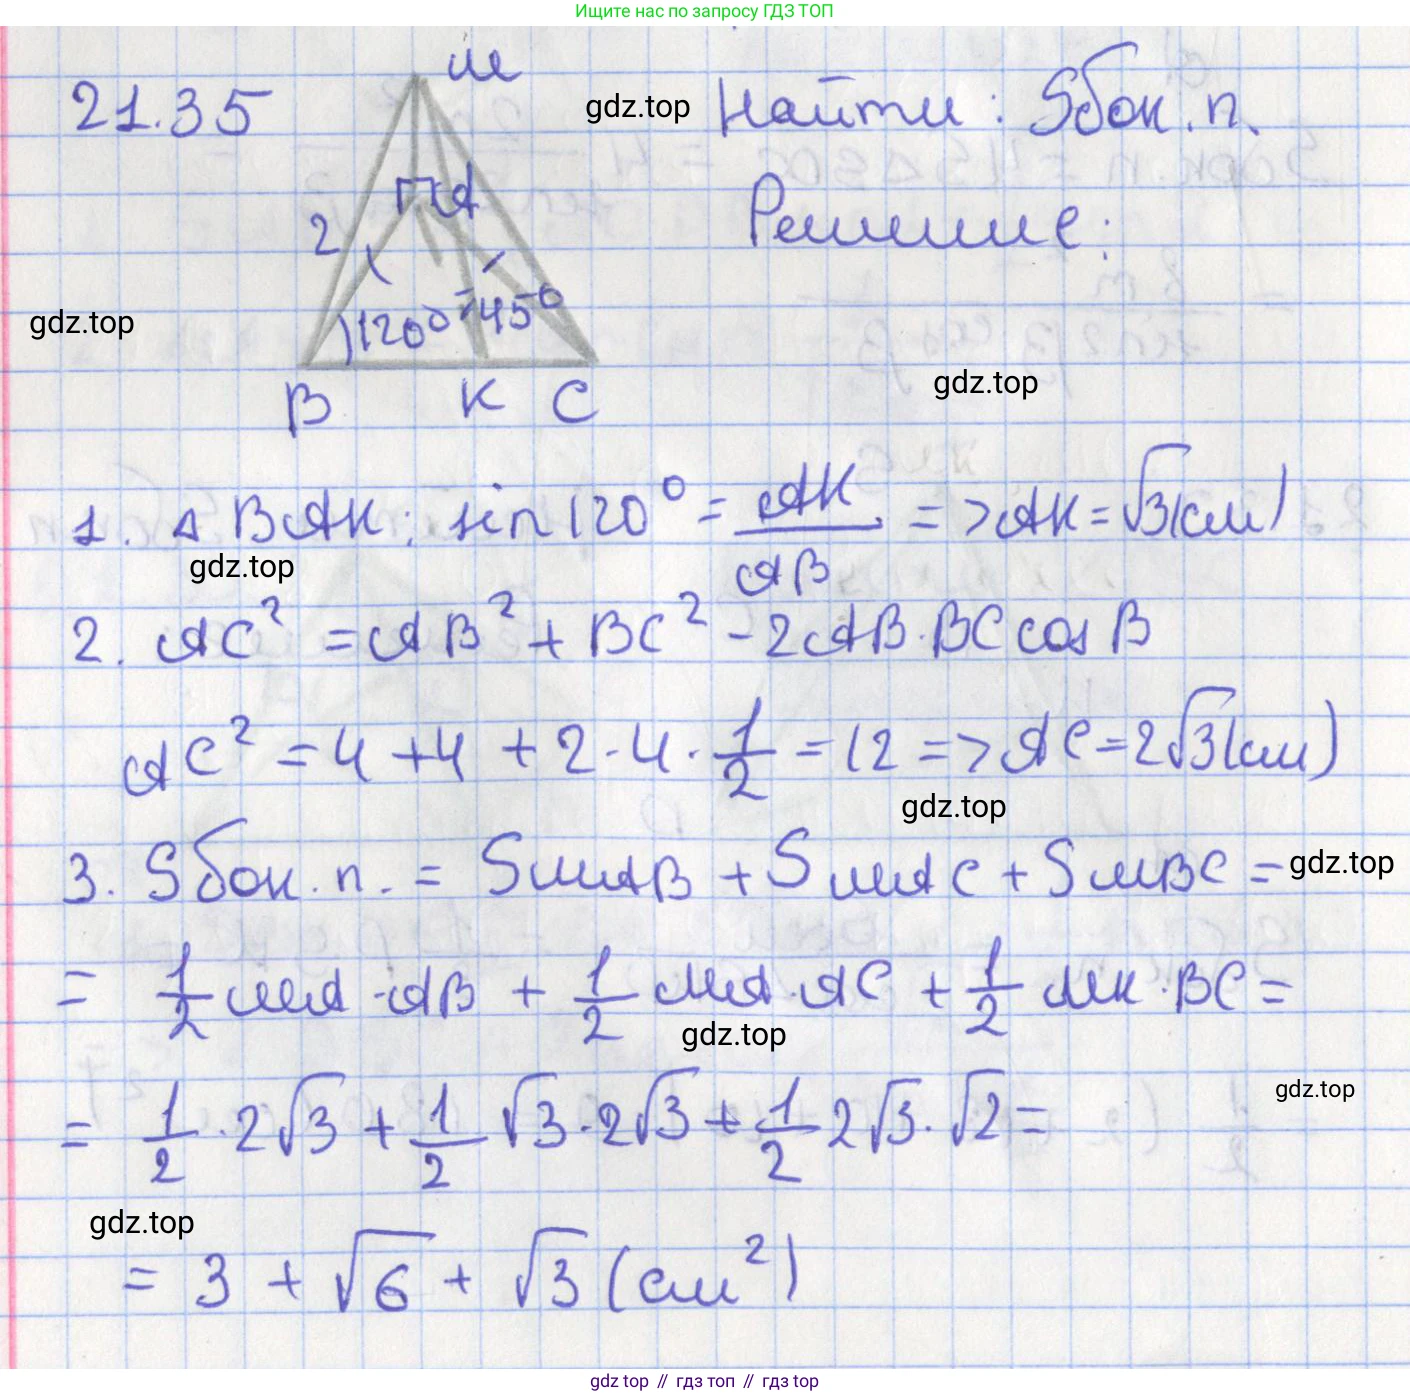 Ищите нас по запросу ГДЗ ТОП
21.35
M
A
2
120°
45°
B K C
gdz.top
Найти: Sбок.п.
Решение:
gdz.top
gdz.top
1. △ BAK: sin120° = AK/AB => AK = √3(см)
gdz.top
2. AC² = AB² + BC² - 2AB·BC cosB
AC² = 4 + 4 + 2·4·1/2 = 12 => AC = 2√3(см)
gdz.top
3. Sбок.п. = SMAB + SMAC + SMBC =
gdz.top
= 1/2 MA·AB + 1/2 MA·AC + 1/2 MK·BC =
gdz.top
gdz.top
= 1/2·2√3 + 1/2 √3·2√3 + 1/2 2√3·√2 =
gdz.top
= 3 + √6 + √3 (см²)
gdz.top // гдз топ // gdz top